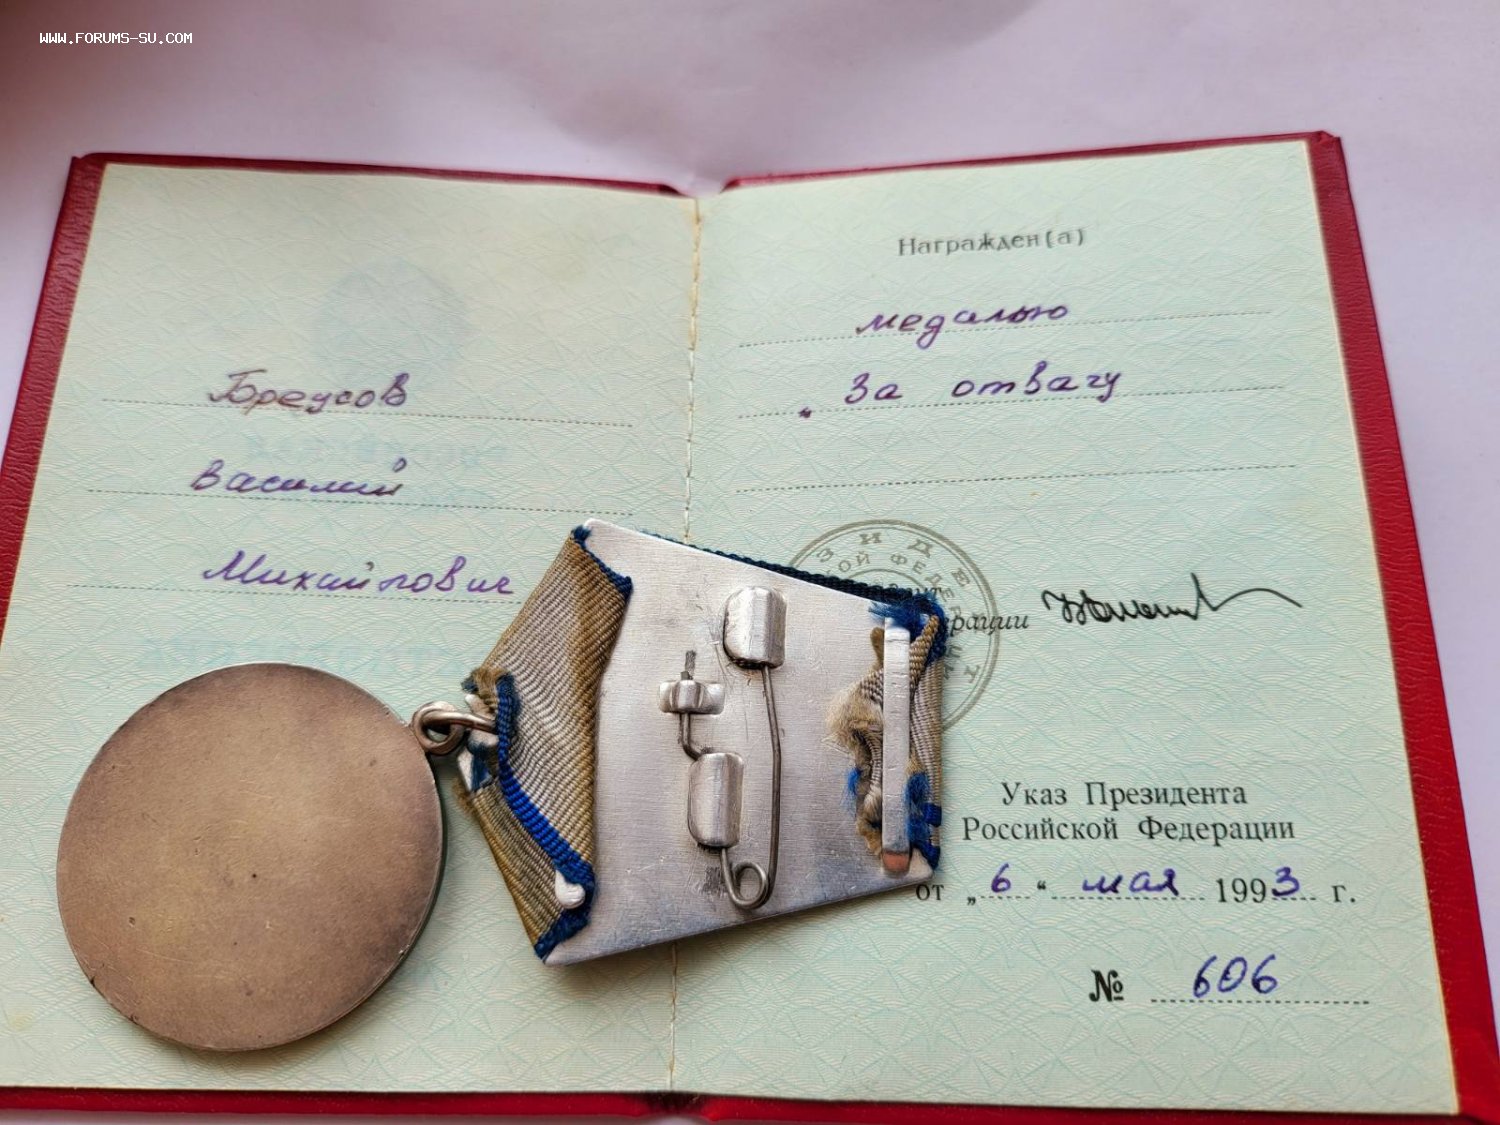 WWW.FORUMS-SU.COM
Бреусов
Василий
Михайлович
Награжден(а)
медалью
„За отвагу
ЗИДЕ
ОЙ ФЕДЕР
ерации
Указ Президента
Российской Федерации
от „6“ мая 1993 г.
№ 606